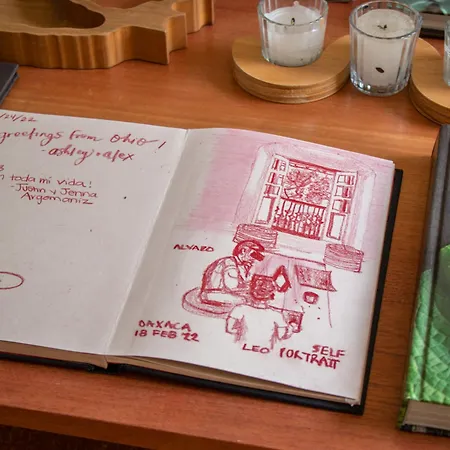 /24/22
greetings from Ohio!
- ashley + alex
toda mi vida!
- Jvonn y Jenna
Argomaniz
ALVARO
OAXACA
18 FEB 22
LEO
SELF
PORTRAIT